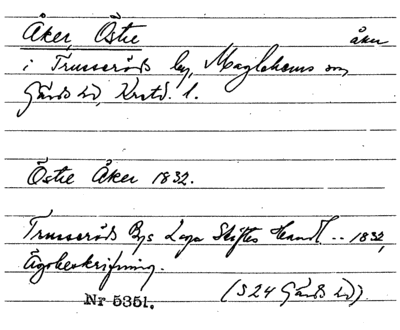 Åker, Östre åker
i Trusseröds by, Maglehems sn
Gärds hd, Krstd. l.
Östre Åker 1832.
Trusseröds Bys Laga Skiftes Handl. .. 1832,
Ägobeskrifning.
Nr 5351. (S 24 Gärds hd)